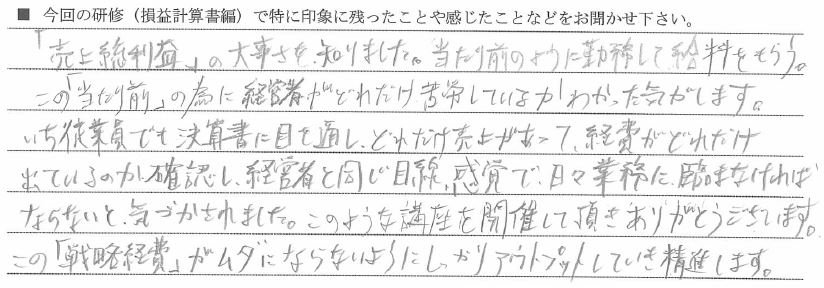 ■ 今回の研修（損益計算書編）で特に印象に残ったことや感じたことなどをお聞かせ下さい。
「売上総利益」の大事さを知りました。当たり前のように勤務して給料をもらう。
この「当たり前」の為に経営者がどれだけ苦労しているかわかった気がします。
いち従業員でも決算書に目を通し、どれだけ売上があって、経費がどれだけ
出ているのか確認し、経営者と同じ目線、感覚で、日々業務に臨まなければ
ならないと気づかされました。このような講座を開催して頂きありがとうございます。
この「戦略経費」がムダにならないようにしっかりアウトプットしていき精進します。